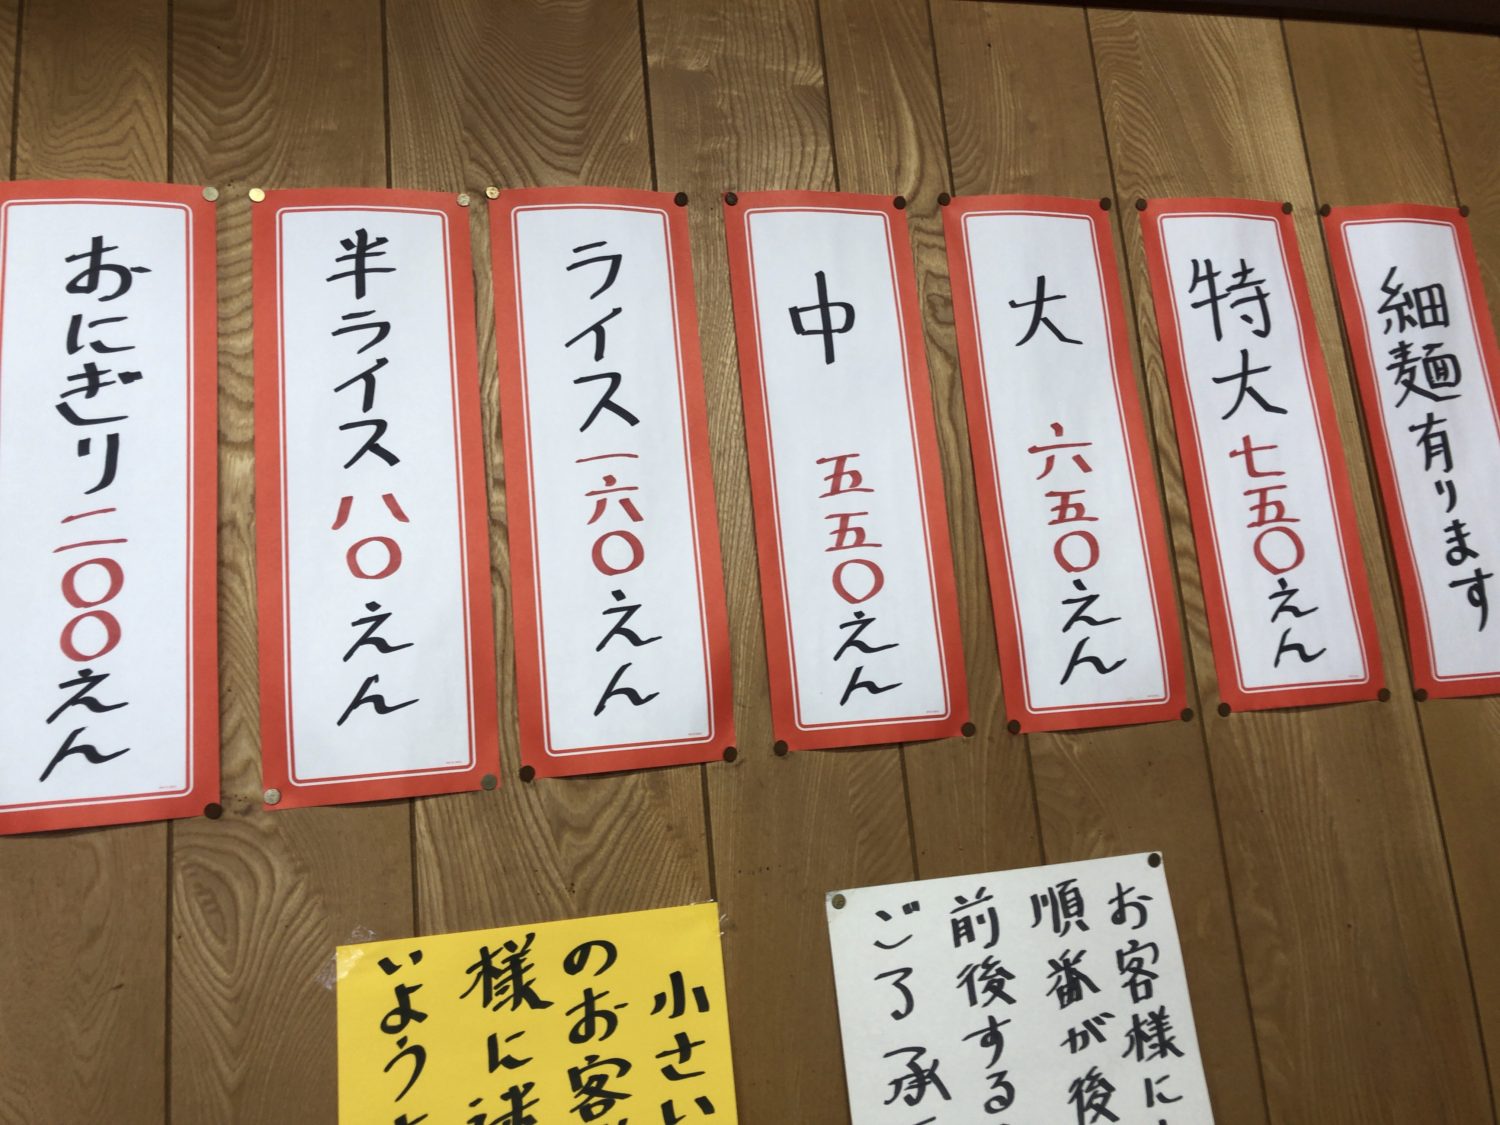 細麺有ります
特大七五〇えん
大 六五〇えん
中 五五〇えん
ライス一六〇えん
半ライス八〇えん
おにぎり二〇〇えん
お客様に
順番が後
前後する
ご了承
小さい
のお客
様に
いよう